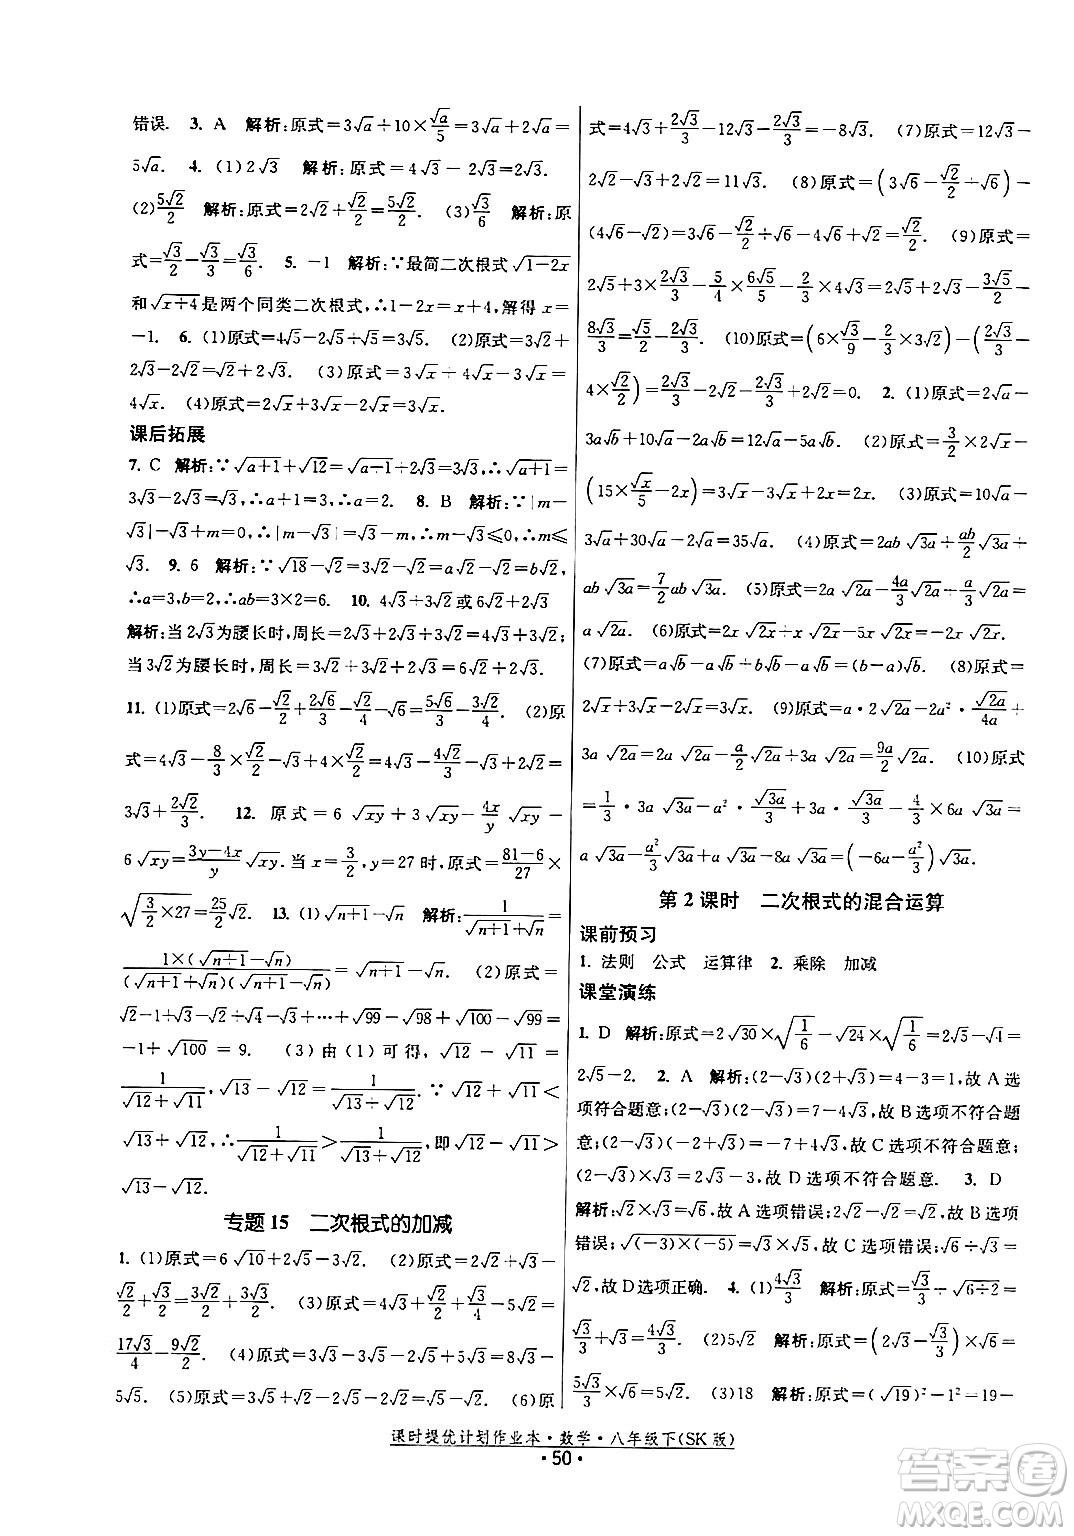 错误. 3. A 解析:原式=3√a+10×√a/5=3√a+2√a=
5√a. 4. (1)2√3 解析:原式=4√3-2√3=2√3.
(2)5√2/2 解析:原式=2√2+√2/2=5√2/2. (3)√3/6 解析:原
式=√3/2-√3/3=√3/6. 5. -1 解析:∵最简二次根式√(1-2x)
和√(x+4)是两个同类二次根式,∴1-2x=x+4,解得x=
-1. 6. (1)原式=4√5-2√5+√5=3√5. (2)原式=2√2+
2√3-2√2=√2+2√3. (3)原式=3√x+4√x-3√x=
4√x. (4)原式=2√x+3√x-2√x=3√x.
课后拓展
7. C 解析:∵√(a+1)+√12=√(a+1)+2√3=3√3,∴√(a+1)=
3√3-2√3=√3,∴a+1=3,∴a=2. 8. B 解析:∵|m-
√3|-√3+m=0,∴|m-√3|=√3-m,∴m-√3≤0,∴m≤
√3. 9. 6 解析:∵√18-√2=3√2-√2=a√2-√2=b√2,
∴a=3,b=2,∴ab=3×2=6. 10. 4√3+√2或6√2+2√3
解析:当2√3为腰长时,周长=2√3+2√3+√2=4√3+√2;
当3√2为腰长时,周长=3√2+3√2+2√3=6√2+2√3.
11. (1)原式=2√6-√2/2+2√6/3-√2/4-√6=5√6/3-3√2/4. (2)原
式=4√3-8/3×√2/2-4×√3/2+√2/2=4√3-4√2/3-2√3+√2/2=
2√3+2√2/3. 12. 原式=6√xy+3√xy-4x/y√xy-
6√xy=(3y-4x)/y√xy. 当x=3/2,y=27时,原式=(81-6)/27×
√(3/2×27)=25/2√2. 13. (1)√(n+1)-√n 解析:1/(√(n+1)+√n)=
1×(√(n+1)-√n)/((√(n+1)+√n)(√(n+1)-√n))=√(n+1)-√n. (2)原式=
√2-1+√3-√2+…+√99-√98+√100-√99=
-1+√100=9. (3)由(1)可得,√12-√11=
1/(√12+√11),√13-√12=1/(√13+√12). ∵√12+√11<
√13+√12,∴1/(√12+√11)>1/(√13+√12),即√12-√11>
√13-√12.
专题15 二次根式的加减
1. (1)原式=6√10+2√5-3√2. (2)原式=2√2-2√3-
√2/2+√3/2=√2/2+√3/2. (3)原式=4√3+√2/2+√3/4-5√2=
17√3/4-9√2/2. (4)原式=3√3-2√5+5√3=8√3-
5√5. (5)原式=3√5+2√2-4√2=3√5-2√2. (6)原
式=4√3+2√3/3-12√3-2√3/3=-8√3. (7)原式=12√3-
2√2-√3+2√2=11√3. (8)原式=(3√6-√2/2+√6)-
(4√6-√2)=3√6-√2/2+√6-4√6+√2=√2/2. (9)原式=
2√5+3×2√3/3-5/4×6√5/5-4×3√3/3=2√5+2√3-3√5/2-
8√3/3=√5/2-2√3/3. (10)原式=(6×√3/9-2/3×3√2)-(2√3/3-
4×√2/2)=2√3/3-2√2-2√3/3+2√2=0. 2. (1)原式=2√a-
3a√b+10√a-2a√b=12√a-5a√b. (2)原式=3/2×2√x-
(15×√x/5-2√x)=3√x-3√x+2√x=2√x. (3)原式=10√a-
3√a+2√a=35√a. (4)原式=2ab√3a+ab/2√3a+
ab√3a=7/2ab√3a. (5)原式=2a√a-4a/3√a+a/3√a=
a√2a. (6)原式=2x√2x+x√2x-2x√2x=x√2x.
(7)原式=a√b-a√b+b√b-a√b=(b-a)√b. (8)原式=
2√x+3√x-2√x=3√x. (9)原式=a·2√2a-2a²·√2a/4a+
3a√2a=2a√2a-a/2√2a+3a√2a=9a/2√2a. (10)原式
=1/3·3a√3a-a/2·2√3a-3a·3√3a-4/3×a/4√3a=
a√3a-a²/3√3a-a√3a=(-6a-a²/3)√3a.
第2课时 二次根式的混合运算
课前预习
1. 法则 公式 运算律 2. 乘除 加减
课堂演练
1. D 解析:原式=2√30×√(1/6)-√24×√(1/6)=2√5-√4=
2√5-2. 2. A 解析:(2-√3)(2+√3)=4-3=1,故A选
项符合题意;(2-√3)(2-√3)=7-4√3,故B选项不符合题
意;(2-√3)(-2+√3)=-7+4√3,故C选项不符合题意;
(2-√3)×√3=2√3-3,故D选项不符合题意. 3. D
解析:√2×√3=√6,故A选项错误;2√2-√2=√2,故B选项
错误;√((-3)×(-5))=√15,故C选项错误;√6÷√3=
√2,故D选项正确. 4. (1)4√3/3 解析:原式=√3/3+√(6÷2)=
√3/3+√3=4√3/3. (2)5√2 解析:原式=(2√3-√3/3)×√6=
5√3/3×√6=5√2. (3)18 解析:原式=(√19)²-1²=19-
课时提优计划作业本·数学·八年级下(SK版)
·50·
答案圈
MXQE.COM